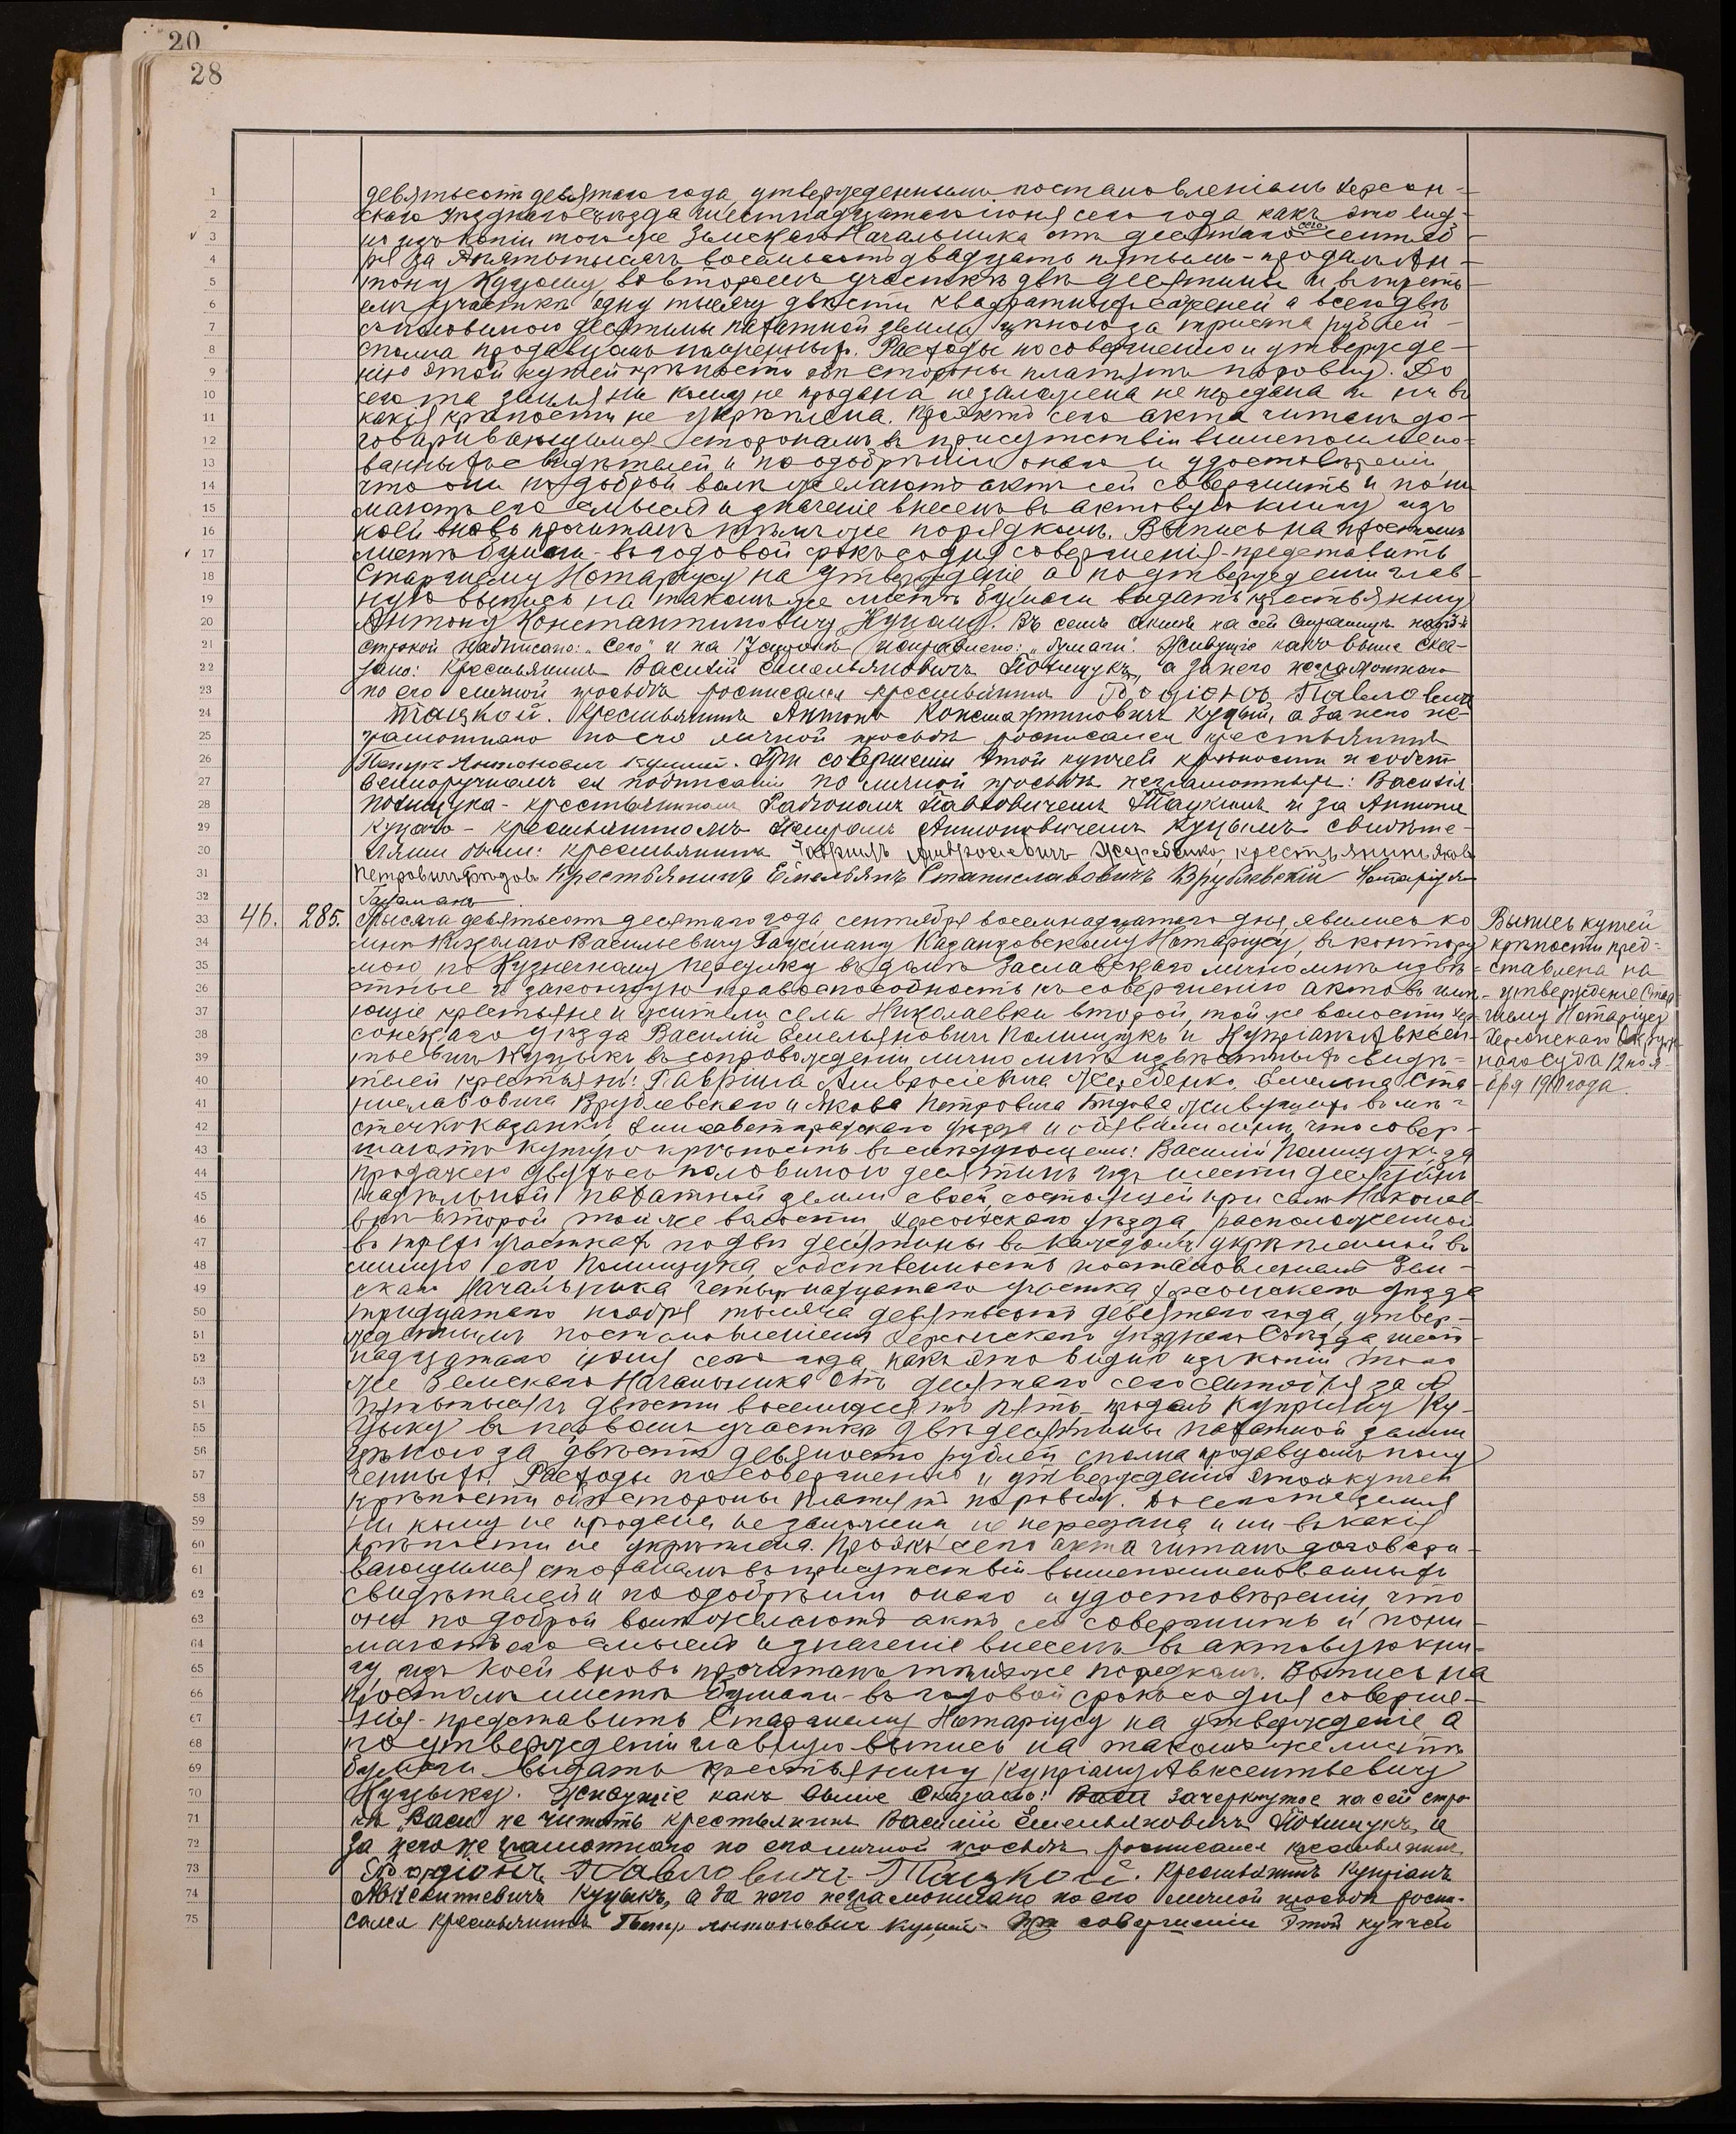 20
28
1 девятьсотъ девятаго года, утвержденнымъ постановленіемъ Херсон-
2 скаго Уѣзднаго Съѣзда шестнадцатаго іюня сего года, какъ это вид-
3 но изъ копіи того же Земскаго Начальника отъ десятаго сего сентяб-
4 ря за № пятьтысячъ восемьсотъ двадцать пятымъ - продалъ Ан-
5 тону Куцому во второмъ участкѣ двѣ десятины и въ треть-
6 емъ участкѣ одну тысячу двѣсти квадратныхъ саженей а всего двѣ
7 съ половиною десятины пахатной земли цѣною за триста рублей
8 сполна продавцомъ полученныхъ. Расходы по совершенію и утвержде-
9 нію этой купчей крѣпости обѣ стороны платятъ поровну. До
10 сего та земля ни кому не продана не заложена не передана и ни въ
11 какія крѣпости не укрѣплена. Проэктъ сего акта читанъ до-
12 говаривающимся сторонамъ въ присутствіи вышепоимено-
13 ванныхъ свидѣтелей и по одобреніи онаго и удостовѣреніи,
14 что они по доброй волѣ желаютъ актъ сей совершить и пони
15 маютъ его смыслъ и значеніе внесенъ въ актовую книгу изъ
16 коей вновь прочитанъ тѣмъ же порядкомъ. Выпись на простомъ
17 листѣ бумаги - въ годовой срокъ со дня совершенія - представить
18 Старшему Нотаріусу на утвержденіе, а по утвержденіи глав
19 ную выпись на такомъ же листѣ бумаги выдать крестьянину
20 Антону Константиновичу Куцому. Въ семъ актѣ на сей страницѣ надъ 3
21 строкой надписано: „сего“ и на 17 строкѣ исправлено: „бумаги“. Живущіе какъ выше ска-
22 зано: Крестьянинъ Василій Емельяновичъ Полищукъ, а за него неграмотнаго
23 по его личной просьбѣ росписался крестьянинъ Родіонъ Павловичъ
24 Тацкой. Крестьянинъ Антонъ Константиновичъ Куцый, а за него не-
25 грамотнаго по его личной просьбѣ росписался крестьянинъ
26 Петръ Антоновичъ Куцый. При совершеніи этой купчей крѣпости и собст
27 венноручномъ ея подписаніи по личной просьбѣ неграмотныхъ: Василія
28 Полищука - крестьяниномъ Родіономъ Павловичемъ Тацкимъ и за Антона
29 Куцаго - крестьяниномъ Петромъ Антоновичемъ Куцымъ свидѣте-
30 лями были: крестьянинъ Гавріилъ Амвросіевичъ Жеребенко, крестьянинъ Яковъ
31 Петровичъ Крестьянинъ Емельянъ Станиславовичъ Врублевскій Нотаріусъ
32 Гаусманъ
33 46. 285. Тысяча девятьсотъ десятаго года, сентября восемнадцатаго дня, явились ко
34 мнѣ Николаю Васильевичу Гаусману Казанковскому Нотаріусу, въ контору
35 мою, по Кузнечному переулку въ домѣ Заславскаго лично мнѣ извѣ-
36 стные и законную правоспособность къ совершенію актовъ имѣ-
37 ющіе крестьяне и жители села Николаевки второй, той же волости Хер
38 сонскаго уѣзда Василій Емельяновичъ Полищукъ и Купріанъ Авксен-
39 тьевичъ Куцыкъ въ сопровожденіи лично мнѣ извѣстныхъ свидѣ-
40 телей крестьянъ: Гавріила Амвросіевича Жеребенко, Емельяна Ста-
41 ниславовича Врублевскаго и Якова Петровича живущихъ въ мѣ-
42 стечкѣ Казанкѣ, Елисаветградскаго уѣзда и объявили мнѣ, что совер-
43 шаютъ купчую крѣпость въ слѣдующемъ: Василій Полищукъ за
44 продажею двухъ съ половиною десятинъ изъ шести десятинъ
45 надѣльной пахатной земли своей, состоящей при селѣ Николаев
46 кѣ второй той же волости, Херсонскаго уѣзда, расположенной
47 въ трехъ участкахъ по двѣ десятины въ каждомъ укрѣпленной въ
48 личную его Полищука собственность постановленіемъ Зем-
49 скаго Начальника четырнадцатаго участка, Херсонскаго уѣзда
50 тридцатаго ноября тысяча девятьсотъ девятаго года, утвер-
51 жденнымъ постановленіемъ Херсонскаго Уѣзднаго Съѣзда шест
52 надцатаго іюня сего года, какъ это видно изъ копіи того
53 же Земскаго Начальника отъ десятаго сего сентября за №
54 пятьтысячъ двѣсти восемьдесятъ пять - продалъ Купріану Ку-
55 цыку въ первомъ участкѣ двѣ десятины пахатной земли
56 цѣною за двѣсти девяносто рублей сполна продавцомъ полу
57 ченныхъ. Расходы по совершенію и утвержденію этой купчей
58 крѣпости обѣ стороны платятъ поровну. До сего та земля
59 ни кому не продана, не заложена, не передана и ни въ какія
60 крѣпости не укрѣплена. Проэктъ сего акта читанъ договари-
61 вающимся сторонамъ въ присутствіи вышепоименованныхъ
62 свидѣтелей и по одобреніи онаго и удостовѣреніи, что
63 они по доброй волѣ желаютъ актъ сей совершить и пони-
64 маютъ его смыслъ и значеніе внесенъ въ актовую кни-
65 гу, изъ коей вновь прочитанъ тѣмъ же порядкомъ. Выпись на
66 простомъ листѣ бумаги - въ годовой срокъ со дня соверше-
67 нія - представить Старшему Нотаріусу на утвержденіе, а
68 по утвержденіи главную выпись на такомъ же листѣ
69 бумаги выдать крестьянину Купріану Авксентьевичу
70 Куцыку. Живущіе какъ выше сказано: Васи Зачеркнутое на сей стро-
71 кѣ „Васи“ не читать Крестьянинъ Василій Емельяновичъ Полищукъ, а
72 за него неграмотнаго по его личной просьбѣ росписался крестьянинъ
73 Родіонъ Павловичъ Тацкой. Крестьянинъ Купріанъ
74 Авксентьевичъ Куцыкъ, а за него неграмотнаго по его личной просьбѣ роспи-
75 сался крестьянинъ Петръ Антоновичъ Куцый. При совершеніи этой купчей
Выпись купчей
крѣпости пред-
ставлена на
утвержденіе Стар
шему Нотаріусу
Херсонскаго Окруж
наго Суда 12 ноя-
бря 1910 года.